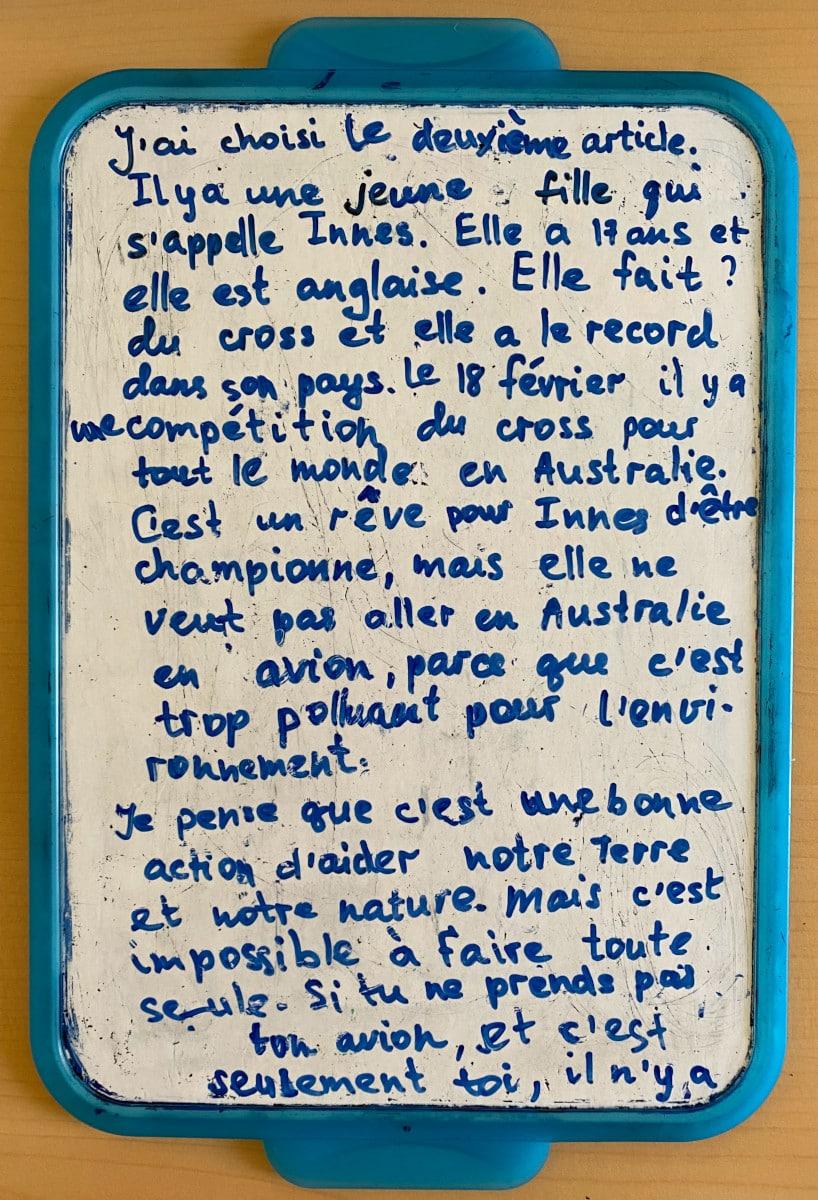 J'ai choisi le deuxième article.
Il y a une jeune fille qui
s'appelle Innes. Elle a 17 ans et
elle est anglaise. Elle fait ?
du cross et elle a le record
dans son pays. Le 18 février il y a
une compétition du cross pour
tout le monde en Australie.
C'est un rêve pour Innes d'être
championne, mais elle ne
veut pas aller en Australie
en avion, parce que c'est
trop polluant pour l'envi-
ronnement.
Je pense que c'est une bonne
action d'aider notre Terre
et notre nature. Mais c'est
impossible à faire toute
seule. Si tu ne prends pas
ton avion, et c'est
seulement toi, il n'y a